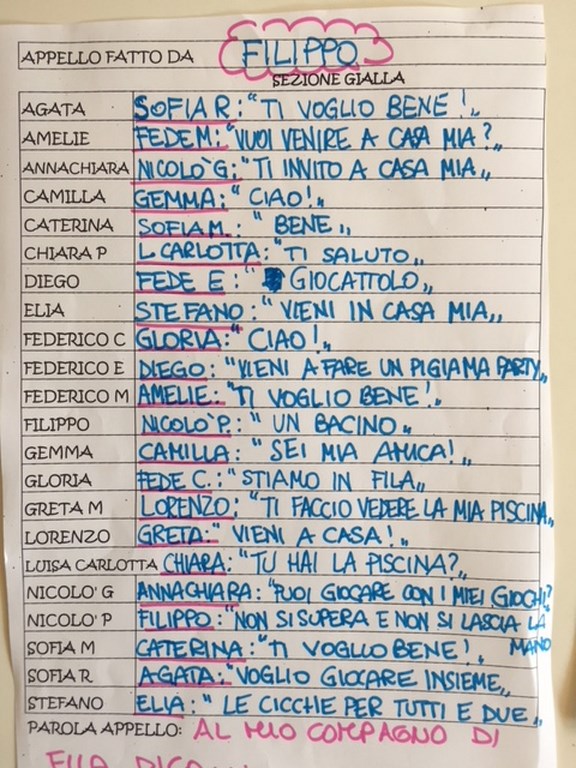 APPELLO FATTO DA FILIPPO
SEZIONE GIALLA
AGATA SOFIA R: "TI VOGLIO BENE!"
AMELIE FEDE M: "VUOI VENIRE A CASA MIA?"
ANNACHIARA NICOLO' G: "TI INVITO A CASA MIA"
CAMILLA GEMMA: "CIAO!"
CATERINA SOFIA M.: "BENE"
CHIARA P L. CARLOTTA: "TI SALUTO"
DIEGO FEDE E: "GIOCATTOLO"
ELIA STEFANO: "VIENI IN CASA MIA"
FEDERICO C GLORIA: "CIAO!"
FEDERICO E DIEGO: "VIENI A FARE UN PIGIAMA PARTY"
FEDERICO M AMELIE: "TI VOGLIO BENE!"
FILIPPO NICOLO' P.: "UN BACINO"
GEMMA CAMILLA: "SEI MIA AMICA!"
GLORIA FEDE C.: "STIAMO IN FILA"
GRETA M LORENZO: "TI FACCIO VEDERE LA MIA PISCINA"
LORENZO GRETA: "VIENI A CASA!"
LUISA CARLOTTA CHIARA: "TU HAI LA PISCINA?"
NICOLO' G ANNACHIARA: "PUOI GIOCARE CON I MIEI GIOCHI?
NICOLO' P FILIPPO: "NON SI SUPERA E NON SI LASCIA LA
MANO
SOFIA M CATERINA: "TI VOGLIO BENE!"
SOFIA R AGATA: "VOGLIO GIOCARE INSIEME"
STEFANO ELIA: "LE CICCHE PER TUTTI E DUE"
PAROLA APPELLO: AL MIO COMPAGNO DI
FILA DICO